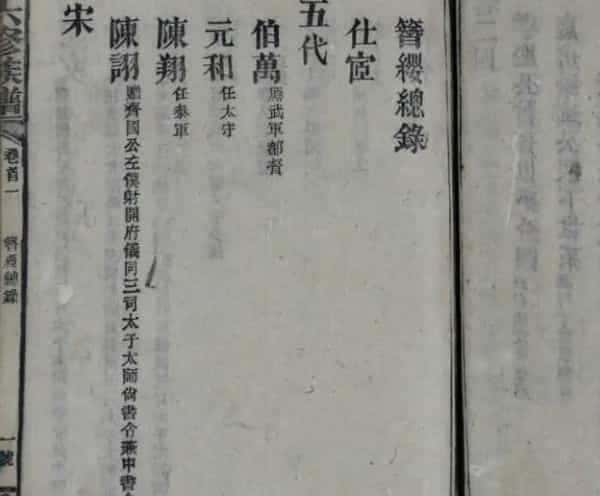 簪纓總錄
仕宦
五代
伯萬 馬武軍都督
元和 任太守
陳翔 任泰軍
陳詡 贈齊國公左僕射開府儀同三司太子太師尚書令兼中書令
宋
六修族譜
卷首一
簪纓總錄
一號